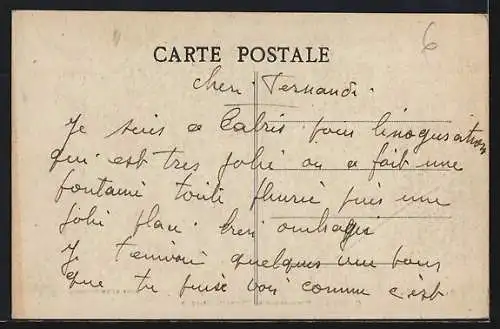 6
CARTE POSTALE
Cheri Fernande.
Je suis a Cabris pour linogusation
qui est tres jolie on a fait une
fontaine toute fleurie puis une
jolie place bien ombragé
Je t'envoie quelques vue pour
que tu puise voir comme c'est